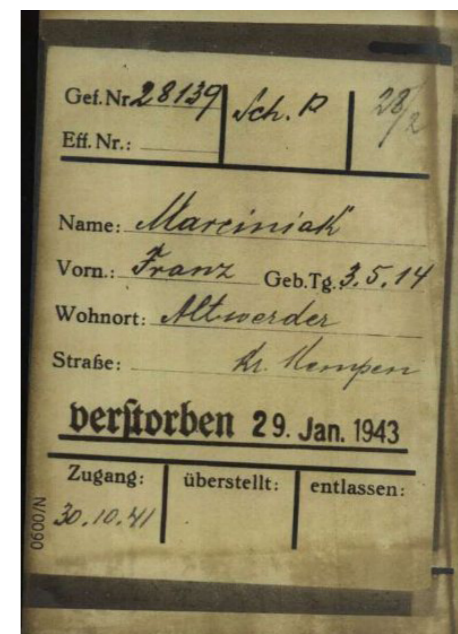 Gef. Nr. 28139 Sch. P 28/2
Eff. Nr.:
Name: Marciniak
Vorn.: Franz Geb. Tg. 3.5.14
Wohnort: Altwerder
Straße: Kr. Kempen
verstorben 29. Jan. 1943
Zugang: überstellt: entlassen:
30.10.41
0090/N